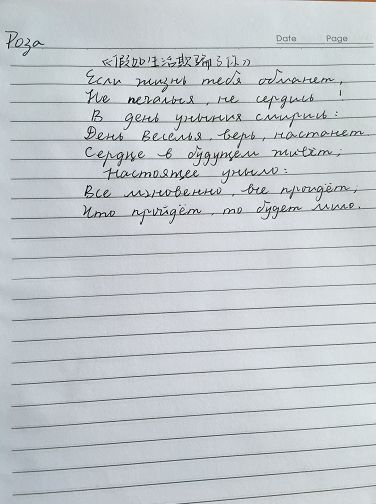 Роза
Date Page
《假如生活欺骗了你》
Если жизнь тебя обманет,
Не печалься, не сердись!
В день уныния смирись:
День веселья, верь, настанет.
Сердце в будущем живёт;
Настоящее уныло:
Все мгновенно, все пройдёт;
Что пройдёт, то будет мило.